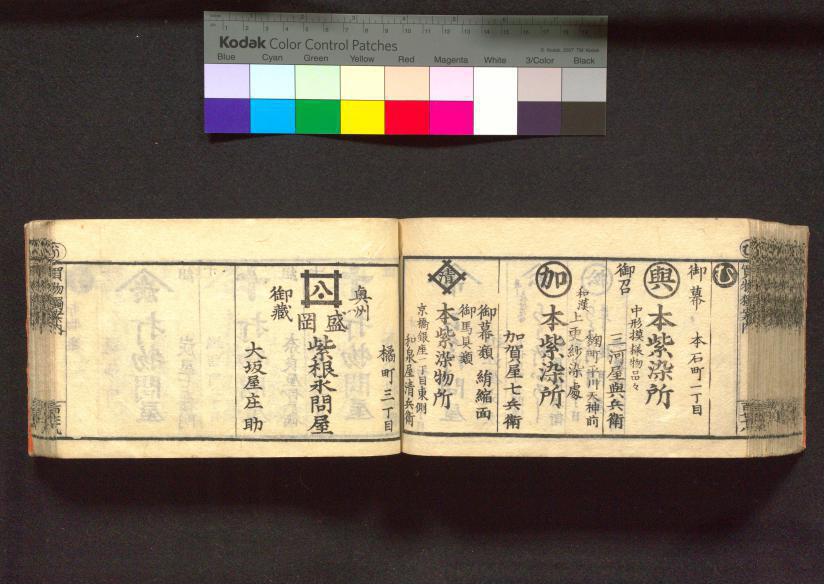 Kodak Color Control Patches
Blue Cyan Green Yellow Red Magenta White 3/Color Black
む
御幕
本石町一丁目
與 本紫染所
中形摸様物品々
御召
三河屋與兵衛
麹町平川天神前
和薄上更紗染處
加 本紫染所
加賀屋七兵衛
御幕類 絹縮面
御馬具類
清 本紫染物所
京橋銀座一丁目東側
和泉屋清兵衛
橘町三丁目
奥州
盛
岡
紫根丞問屋
御蔵
大坂屋庄助